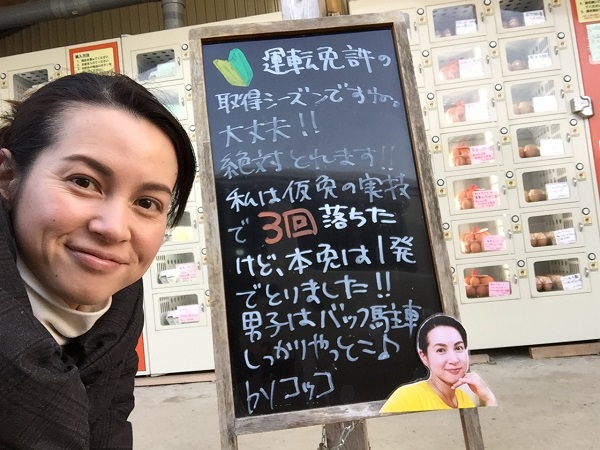 運転免許の
取得シーズンですかね。
大丈夫!!
絶対とれます!!
私は仮免の実技
で3回落ちた
けど、本免は1発
でとりました!!
男子はバック駐車
しっかりやっとこ♪
byコッコ